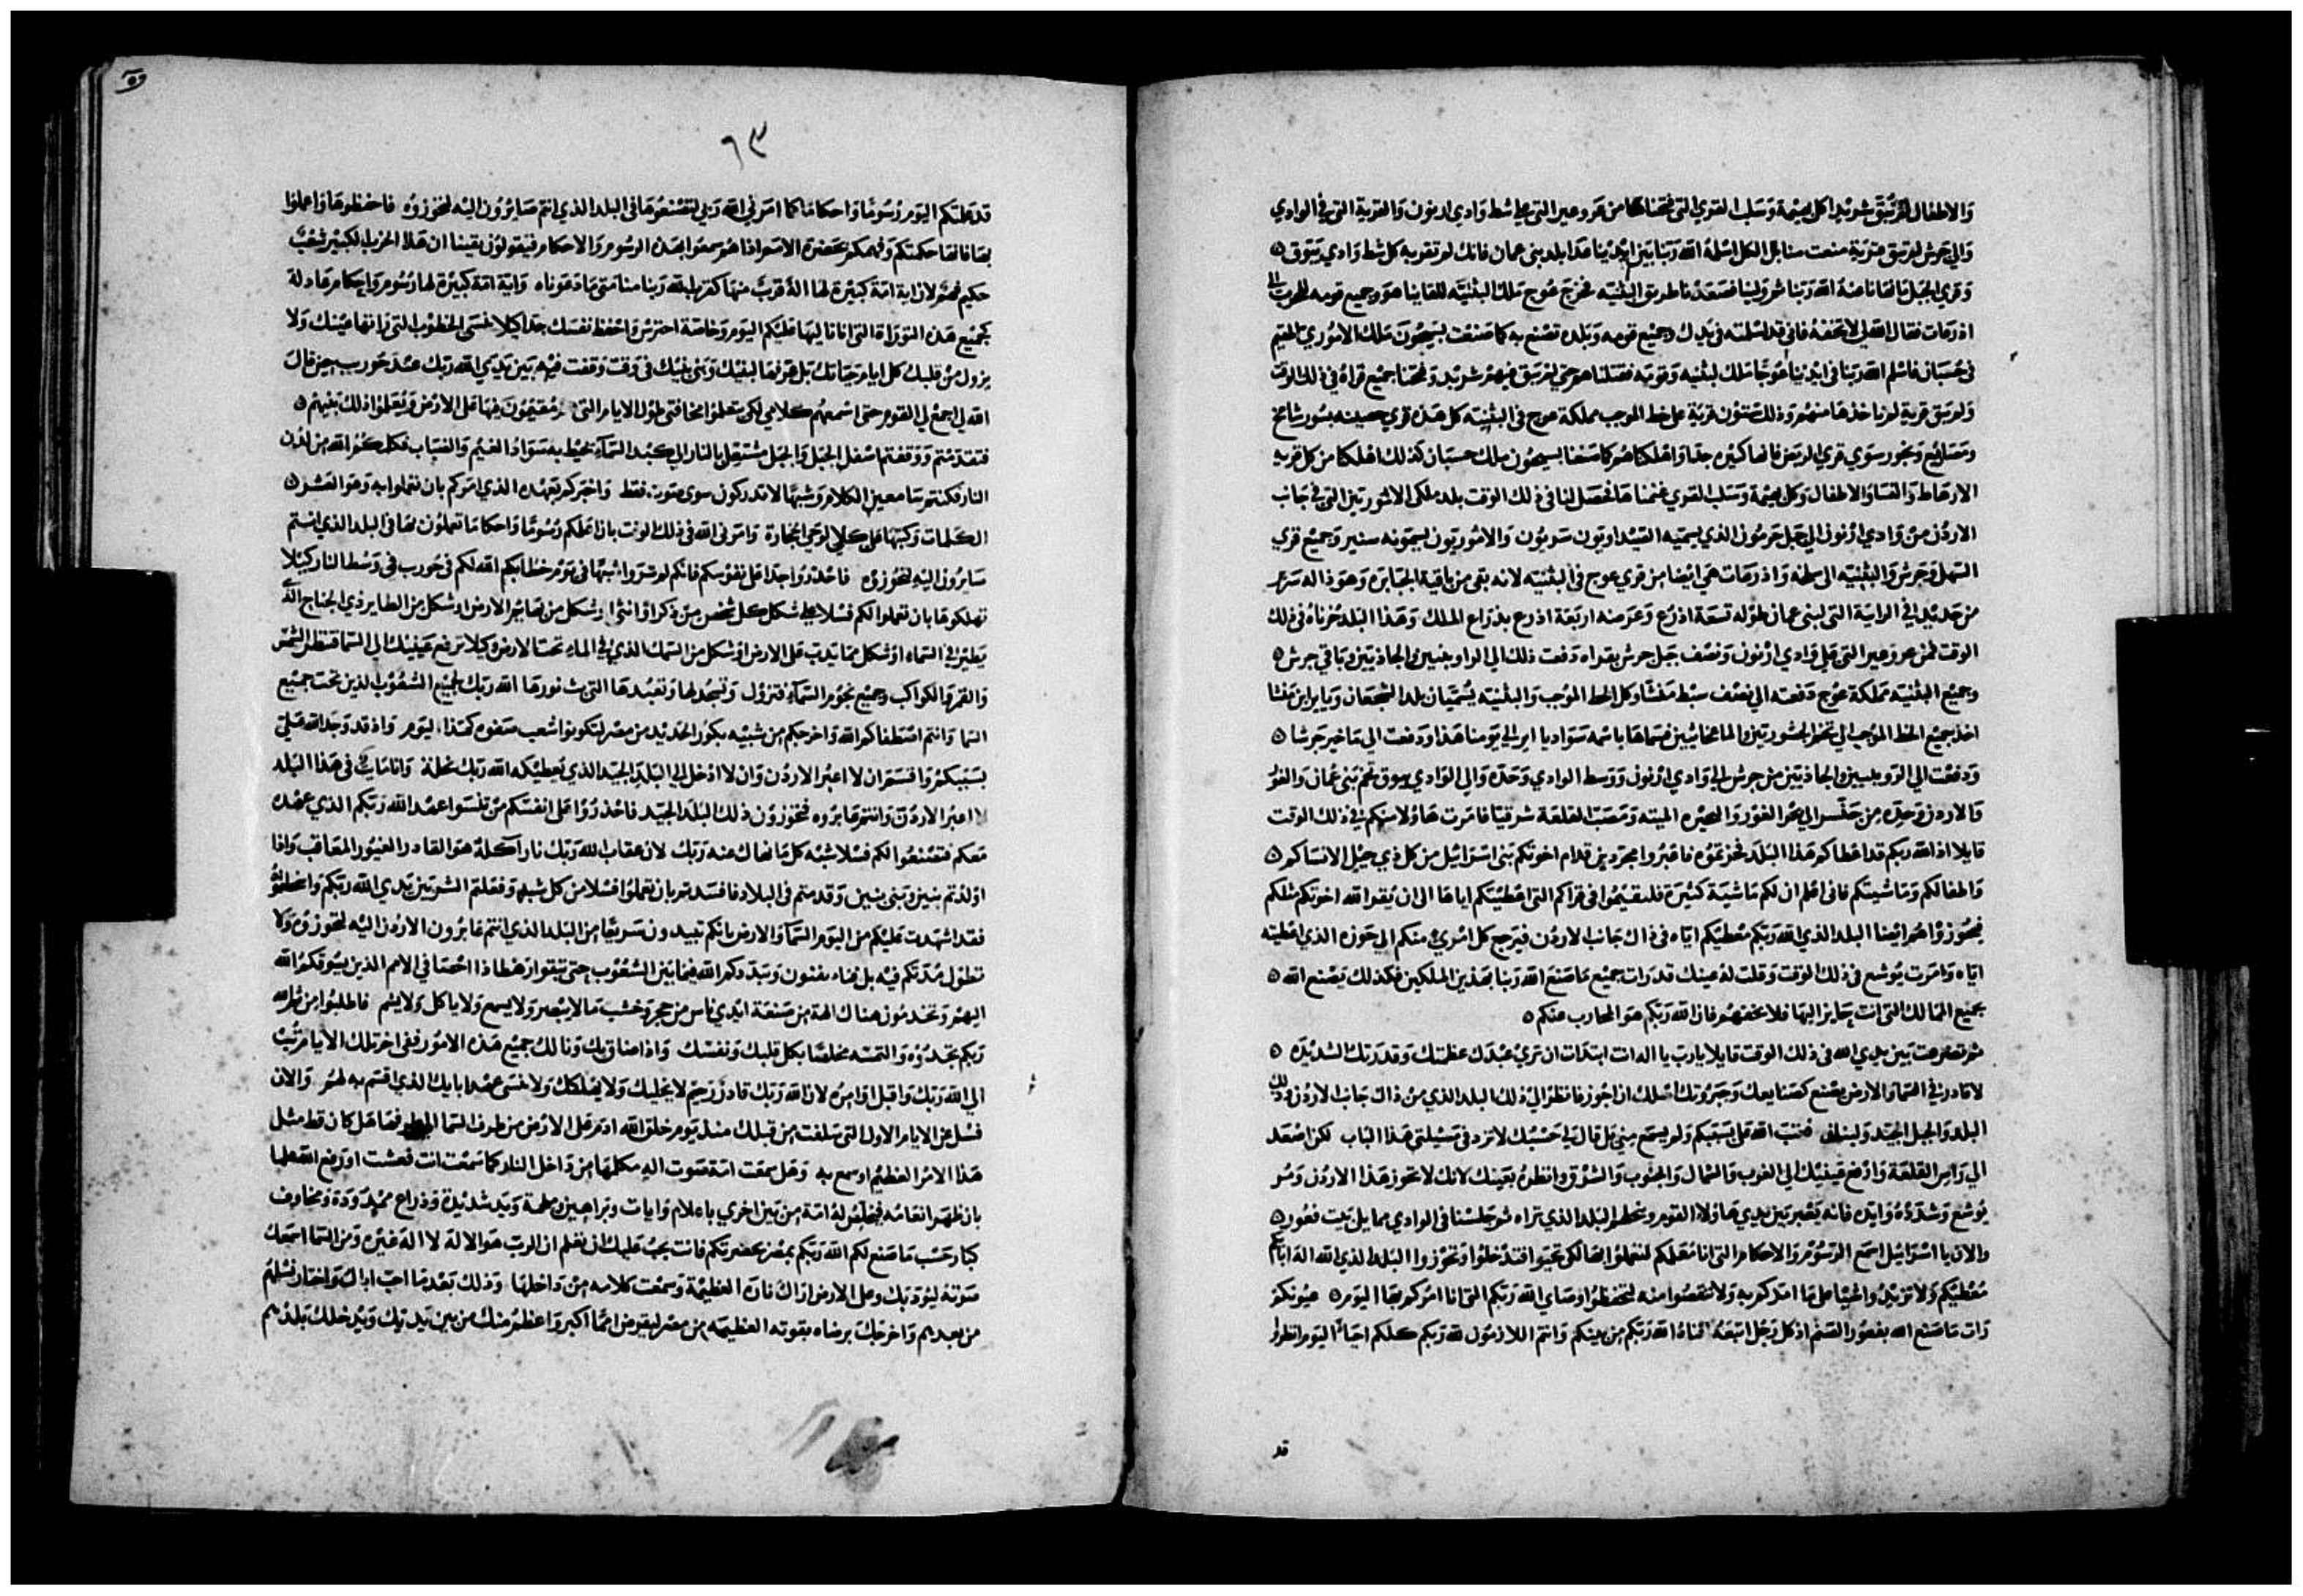 والاطفال لم نبق شريدا كل بهيمة وسلب القري التي فتحناها من عروعير التي علي شط وادي ارنون والقرية التي في الوادي
والي جرش لم تبق قرية منعت منا بل الكل اسلمه الله ربنا بين ايدينا عدا بلد بني عمان فانك لم تقربه كل شط وادي يبوق
وقري الجبل ما نهانا عنه الله ربنا ثم ولينا فصعدنا طريق البثنيه فخرج عوج ملك البثنيه للقاينا هو وجميع قومه للحرب الي
اذرعات فقال الله لي لا تخفه فاني قد اسلمته في يدك وجميع قومه وبلده تصنع به كما صنعت بسيحون ملك الاموري المقيم
في حسبان فاسلم الله ربنا في ايدينا عوجا ملك البثنيه وقومه فقتلناهم حتي لم يبق منهم شريد وفتحنا جميع قراه في ذلك الوقت
ولم يبق قرية لم ناخذها منهم وذلك ستون قرية علي خط الموجب مملكة عوج في البثنيه كل هذه قري حصينه بسور شامخ
ومصاريع ونجور سوي قري الربض فانها كثيره جدا واهلكناهم كما صنعنا بسيحون ملك حسبان كذلك اهلكنا من كل قريه
الارهاط والنسا والاطفال وكل بهيمة وسلب القري غنمناها فحصل لنا في ذلك الوقت بلد ملكي الاموريين التي في جانب
الاردن من وادي ارنون الي جبل حرمون الذي يسميه الصيداويون سريون والاموريون يسمونه سنير وجميع قري
السهل وجرش والبثنيه الي سلخه واذرعات هي ايضا من قري عوج في البثنيه لانه بقي من باقية الجبابره وهوذا له سرير
من حديد في الراية التي لبني عمان طوله تسعة اذرع وعرضه اربعة اذرع بذراع الملك وهذا البلد حزناه في ذلك
الوقت فمن عروعير التي علي وادي ارنون ونصف جبل جرش بقراه دفعت ذلك الي الراوبنيين والجاذيين وباقي جرش
وجميع البثنيه مملكة عوج دفعته الي نصف سبط منشا وكل الخط الموجب والبثنيه يسميان بلد الشجعان ويايير ابن منشا
اخذ جميع الخط الموجب الي تخم الجشوريين والماعخاثيين فسماها باسمه سواد ياير الي يومنا هذا ودفعت الي ماخير جرشا
ودفعت الي الروبليين والجاذيين من جرش الي وادي ارنون ووسط الوادي وحده والي الوادي يبوق تخم بني عمان والغور
والاردن وحده من جنسر الي بحر الغور والبحيره الميته ومصب القلعة شرقيا فامرت هاولا منكم في ذلك الوقت
قايلا اذ الله ربكم قد اعطاكم هذا البلد فحزتموه فاعبروا مجردين قدام اخوتكم بني اسرائيل من كل ذي جيل الا نساكم
واطفالكم وماشيتكم فاني اعلم ان لكم ماشية كثيرة فليقيموا في قراكم التي اعطيتكم اياها الي ان يقر الله اخوتكم مثلكم
فيحوزوا هم ايضا البلد الذي الله ربكم معطيكم اياه في ذاك جانب الاردن فيرجع كل امري منكم الي حوزه الذي اعطيته
اياه وامرت يوشع في ذلك الوقت وقلت له عينك قد رات جميع ما صنع الله ربنا بهذين الملكين فكذلك يصنع الله
بجميع الممالك التي انت جايز اليها فلا تخفهم فان الله ربكم هو المحارب عنكم
ثم تضرعت بين يدي الله في ذلك الوقت قايلا يا رب يا اله انت ابتدات ان تري عبدك عظمتك وقدرتك الشديده
لا قادر في السما والارض يصنع كصنايعك وجبروتك اسلك ان اجوز فانظر الي ذلك البلد الذي من ذاك جانب الاردن ذلك
البلد والجبل الجيد ولبنان فغضب الله علي بسببكم ولم يسمع مني بل قال لي حسبك لا تزد في مسيلتي هذا الباب لكن اصعد
الي راس القلعة وارفع عينيك الي الغرب والشمال والجنوب والشرق وانظره بعينك لانك لا تجوز هذا الاردن ومر
يوشع وشدده وايده فانه يعبر بين يدي هاولا القوم وينحلهم البلد الذي تراه ثم جلسنا في الوادي مما يلي بيت فعور
والان يا اسرائيل اسمع الرسوم والاحكام التي انا معلمكم لتعملوا بها لكي تحيوا فتدخلوا وتحوزوا البلد الذي الله اله ابايكم
معطيكم ولا تزيدوا شيا علي ما امركم به ولا تنقصوا منه لتحفظوا وصاي الله ربكم التي انا امركم بها اليوم عيونكم
رات ما صنع الله بفعور الصنم اذ كل رجل اتبعه افناه الله ربكم من بينكم وانتم اللازمون لله ربكم كلكم احيا اليوم انظروا
قد
٦٣
قد علمتكم اليوم رسوما واحكاما كما امرني الله ربي لتصنعوها في البلد الذي انتم صايرون اليه لتحوزوه فاحفظوها واعملوا
بها فانها حكمتكم وفهمكم بحضرة الامم اذا هم سمعوا بهذه الرسوم والاحكام فيقولون يقينا ان هذا الحزب الكبير شعب
حكيم فهم لان اية امة كبيرة لها اله قريب منها كقرب الله ربنا منا متي ما دعوناه واية امة كبيرة لها رسوم واحكام عادلة
كجميع هذه التوراة التي انا تاليها عليكم اليوم وخاصة احترس واحفظ نفسك جدا كيلا تنسي الخطوب التي راتها عينك ولا
يزول من قلبك كل ايام حياتك بل عرفها لبنيك وبني بنيك في وقت وقفت فيه بين يدي الله ربك عند حوريب حين قال
الله لي اجمع لي القوم حتي اسمعهم كلامي لكي يتعلموا مخافتي طول الايام التي هم مقيمون فيها علي الارض ويعلموا ذلك بنيهم
فتقدمتم ووقفتم اسفل الجبل والجبل مشتعل بالنار الي كبد السماء يحيط به سواد الغيم والضباب فكلمكم الله من لدن
النار فكنتم سامعين الكلام وشبها لا تدركون سوي صوت فقط واخبركم بعهده الذي امركم بان تعملوا به وهو العشر
الكلمات وكتبها علي كلا لوحي الحجارة وامرني الله في ذلك الوقت بان اعلمكم رسوما واحكاما تعملون بها في البلد الذي انتم
سايرون اليه لتحوزوه فاحذروا جدا علي نفوسكم فانكم لم تروا شبها في يوم خطابكم الله لكم في حوريب في وسط النار كيلا
تهلكوها بان تعملوا لكم فسلا علي شكل كل شخص من ذكر او انثي او شكل من بهائم الارض او شكل من الطاير ذي الجناح الذي
يطير في السماء او شكل مما يدب علي الارض او شكل من السمك الذي في الماء تحت الارض وكيلا ترفع عينيك الي السما فتنظر الشمس
والقمر والكواكب وجميع نجوم السماء فتزول وتسجد لها وتعبدها التي بث نورها الله ربك لجميع الشعوب الذين تحت جميع
السما وانتم اصطفاكم الله واخرجكم من شبيه بكور الحديد من مصر لتكونوا شعب صفوه كهذا اليوم واذ قد وجد الله علي
بسببكم واقسم ان لا اعبر الاردن وان لا ادخل الي البلد الجيد الذي يعطيكه الله ربك نحلة وانا مايت في هذا البلد
لا اعبر الاردن وانتم عابروه فتحوزون ذلك البلد الجيد فاحذروا علي انفسكم من تنسوا عهد الله ربكم الذي عهده
معكم فتصنعوا لكم فسلا شبه كل ما نهاك عنه ربك لان عقاب الله ربك نار آكلة هو القادر الغيور المعاقب واذا
اولدتم بنين وبني بنين وقدمتم في البلاد فافسدتم بان تعملوا فسلا من كل شبه وفعلتم الشر بين يدي الله ربكم واسخطتموه
فقد اشهدت عليكم من اليوم السما والارض بانكم تبيدون سريعا من البلد الذي انتم عابرون الاردن اليه لتحوزوه ولا
تطول مدتكم فيه بل نفاء تفنون ويبددكم الله فيما بين الشعوب حتي تبقوا رهطا ذا احصا في الامم الذين يسوقكم الله
اليهم وتخدمون هناك الهة من صنعة ايدي ناس من حجر وخشب ما لا يبصر ولا يسمع ولا ياكل ولا يشم فاطلبوا من ثم الله
ربكم تجدوه والتمسه مخلصا بكل قلبك ونفسك واذا ضاق بك ونالك جميع هذه الامور ففي اخر تلك الايام تب
الي الله ربك واقبل اوامره لان الله ربك قادر رحيم لا يخليك ولا يهلكك ولا ينسي عهد ابايك الذي اقسم به لهم والان
فسل عن الايام الاول التي سلفت من قبلك منذ يوم خلق الله ادم علي الارض من طرف السما الي طرفها هل كان قط مثل
هذا الامر العظيم او سمع به وهل سمعت امة صوت اله مكلمها من داخل النار كما سمعت انت فعشت او رفع الله علما
بان ظهر انعامه فيخلص له امة من بين اخري باعلام وايات وبراهين وملحمة ويد شديدة وذراع ممدودة ومخاوف
كبار حسب ما صنع لكم الله ربكم بمصر بحضرتكم فانت يجب عليك ان تعلم ان الرب هو الاله لا اله غيره ومن السما اسمعك
صوته ليؤدبك وعلي الارض اراك ناره العظيمة وسمعت كلامه من داخلها وذلك بعد ما احب اباك واختار نسلهم
من بعدهم واخرجك برضاه بقوته العظيمه من مصر ليقرض امما اكبر واعظم منك من بين يديك ويدخلك بلدهم